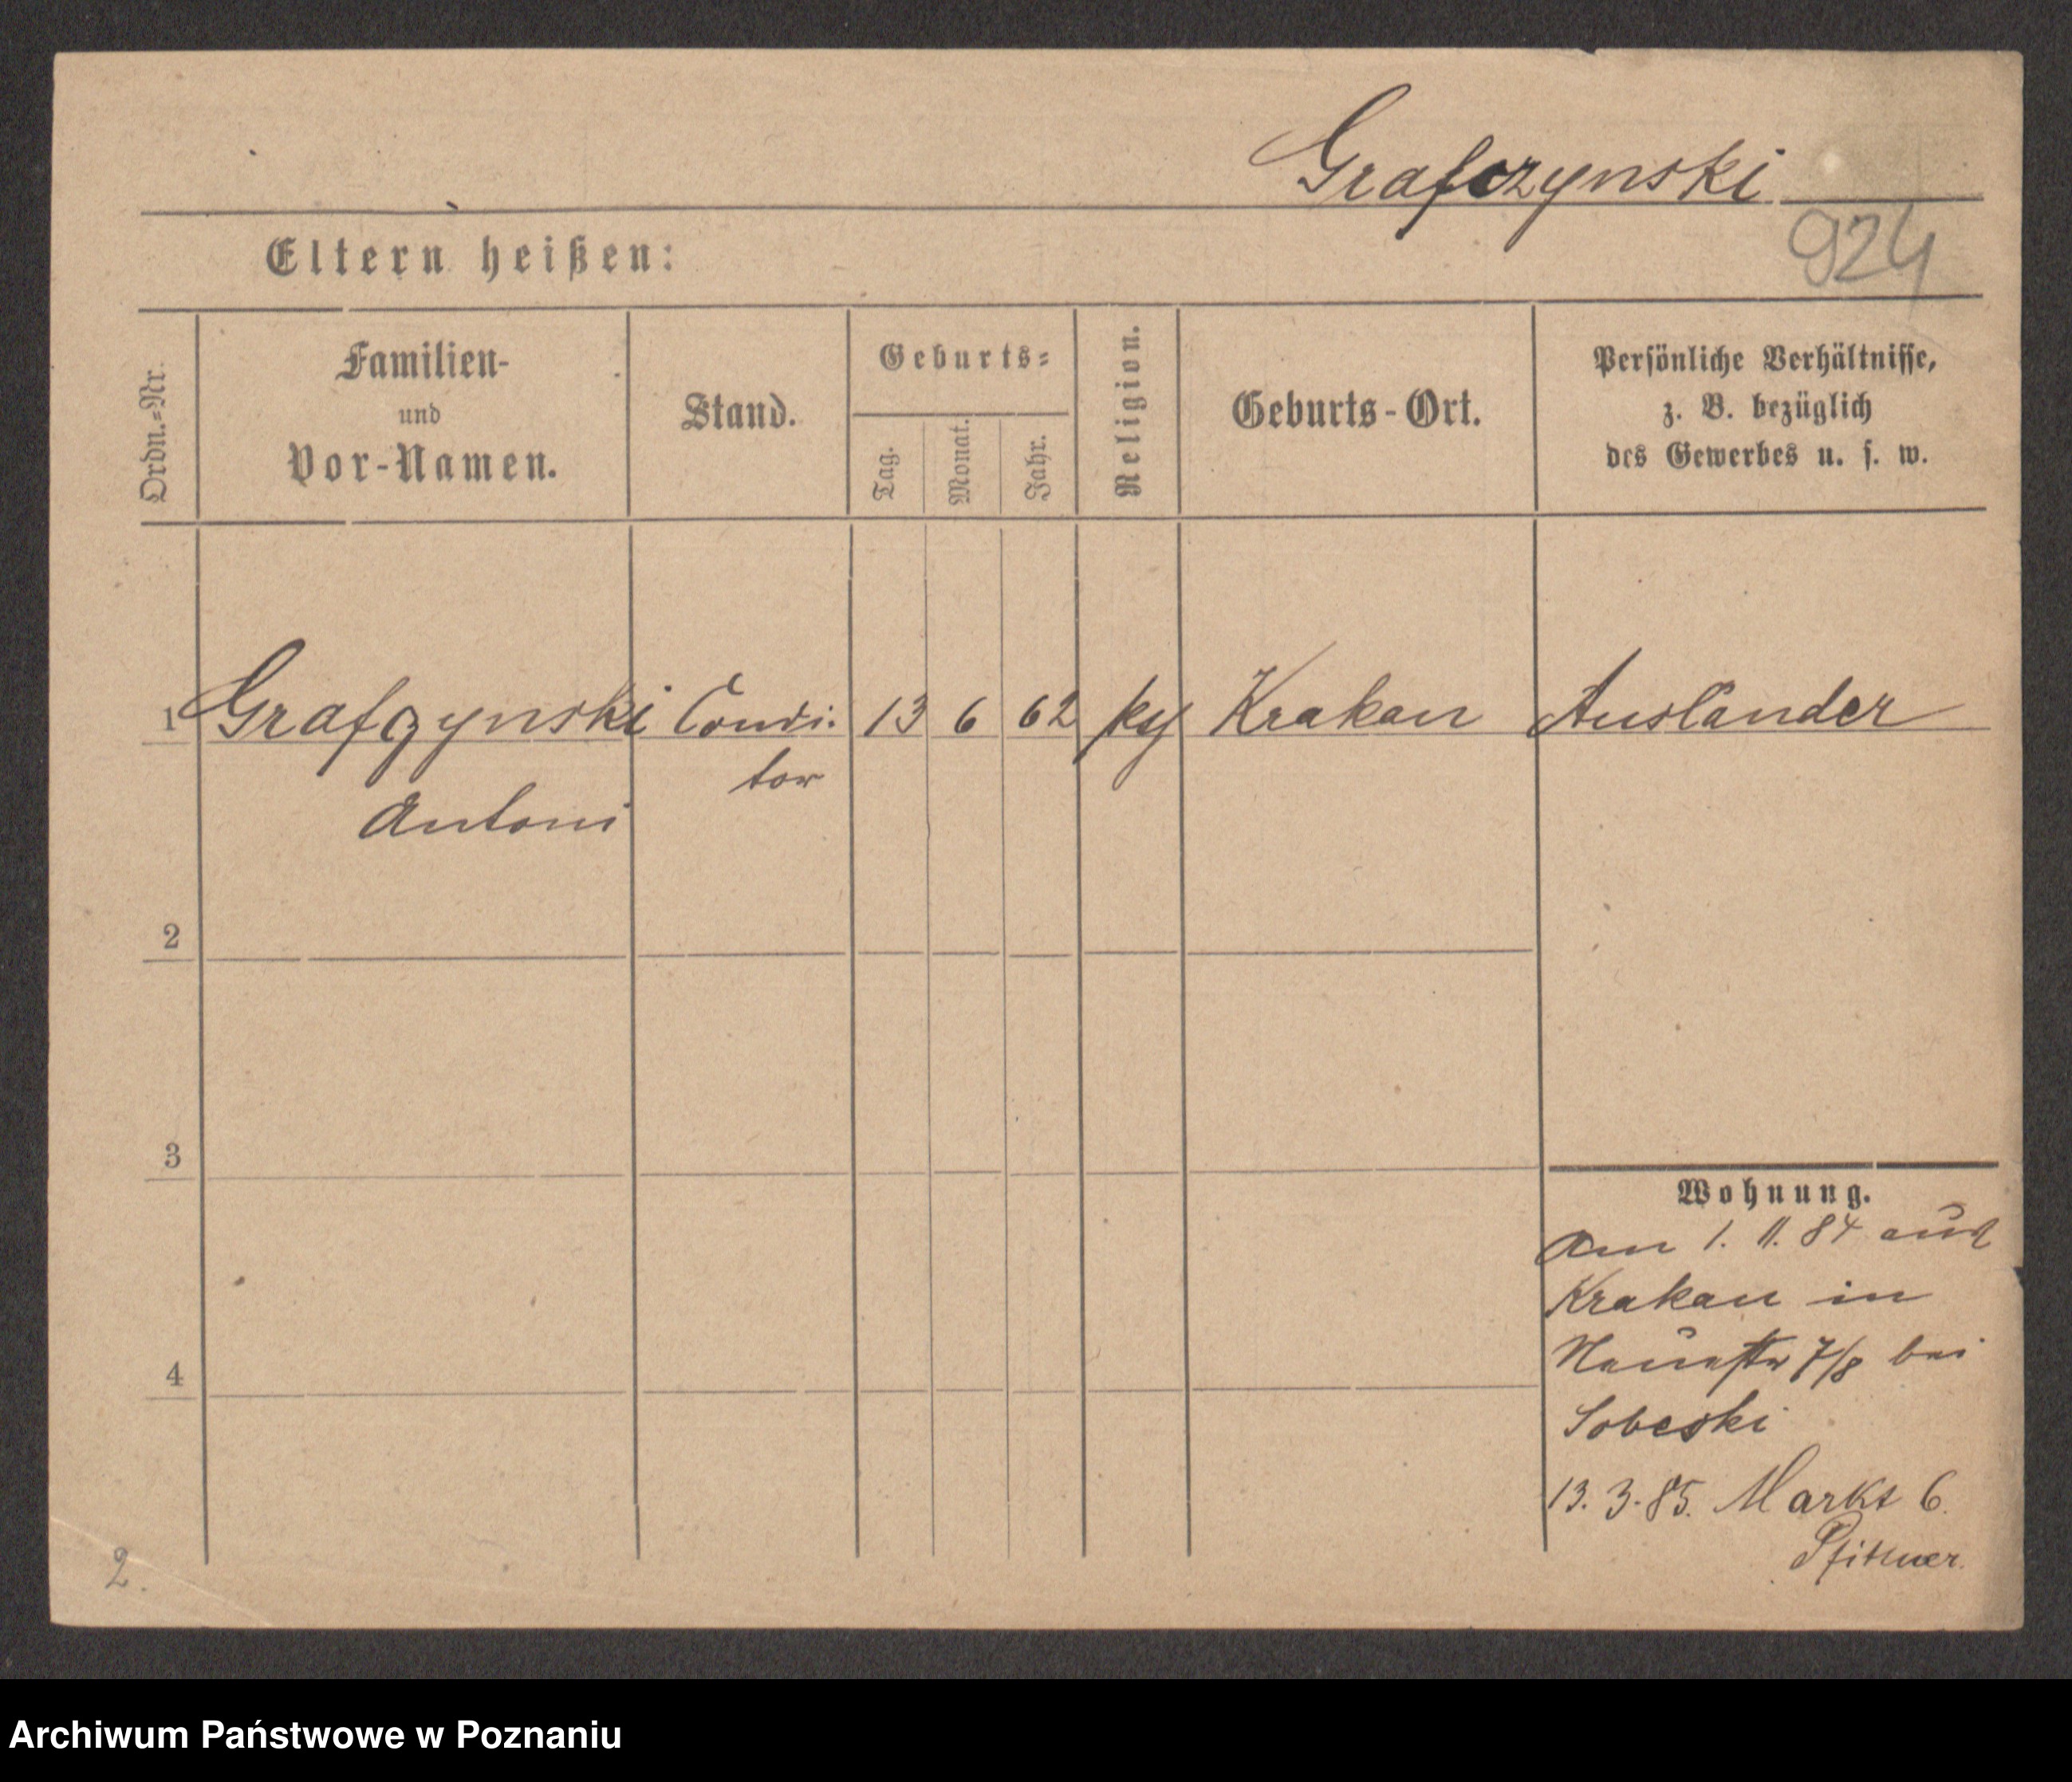 Grafczynski
924
Eltern heißen:
Ordn.=Nr.
Familien-
und
Vor-Namen.
Stand.
Geburts=
Tag.
Monat.
Jahr.
Religion.
Geburts-Ort.
Persönliche Verhältnisse,
z. B. bezüglich
des Gewerbes u. s. w.
1 Condi: 13 6 62 Krakau Ausländer
tor
Antoni
2
3
4
Wohnung.
Am 1. 11. 84 aus
Krakau in
7/8 bei
Sobeski
13. 3. 85. Markt 6.
Pfitzner.
2.
Archiwum Państwowe w Poznaniu